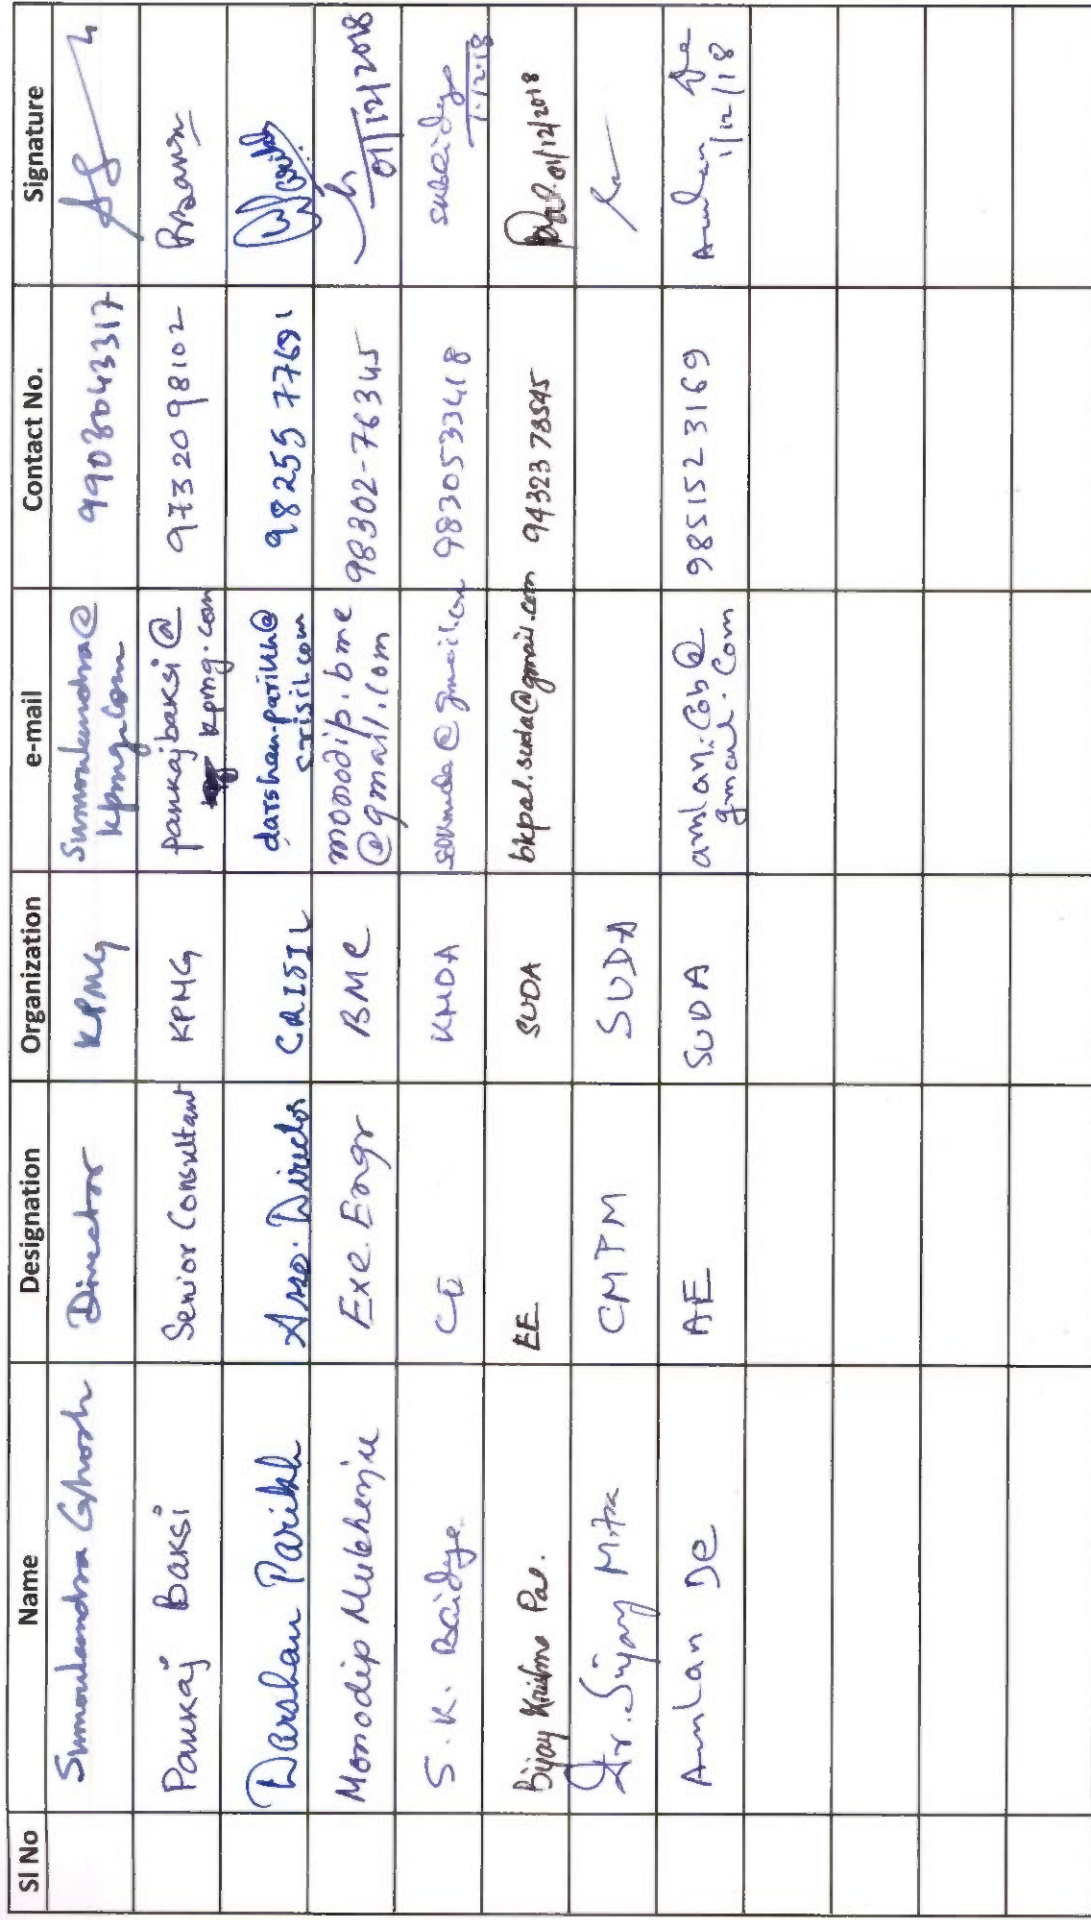 Sl No Name Designation Organization e-mail Contact No. Signature
Ghosh Director KPMG @ kpmg.com 9903043317
Pankaj Baksi Senior Consultant KPMG pankajbaksi@ kpmg.com 9732098102
Darshan Parikh Asso. Director CRISIL darshan.parikh@ crisil.com 98255 77691
Monodip Mukherjee Exe. Engr BME monodip.bme @gmail.com 98302-76345 01/12/2018
S. K. Baidya CE KMDA @gmail.com 9830533418 skbaidya 1.12.18
Bijay Krishna Pal. EE SUDA bkpal.suda@gmail.com 94323 78545 01/12/2018
Dr. Sujay Mitra CMPM SUDA
Amlan De AE SUDA amlan.cob@ gmail.com 9851523169 Amlan De 1/12/18